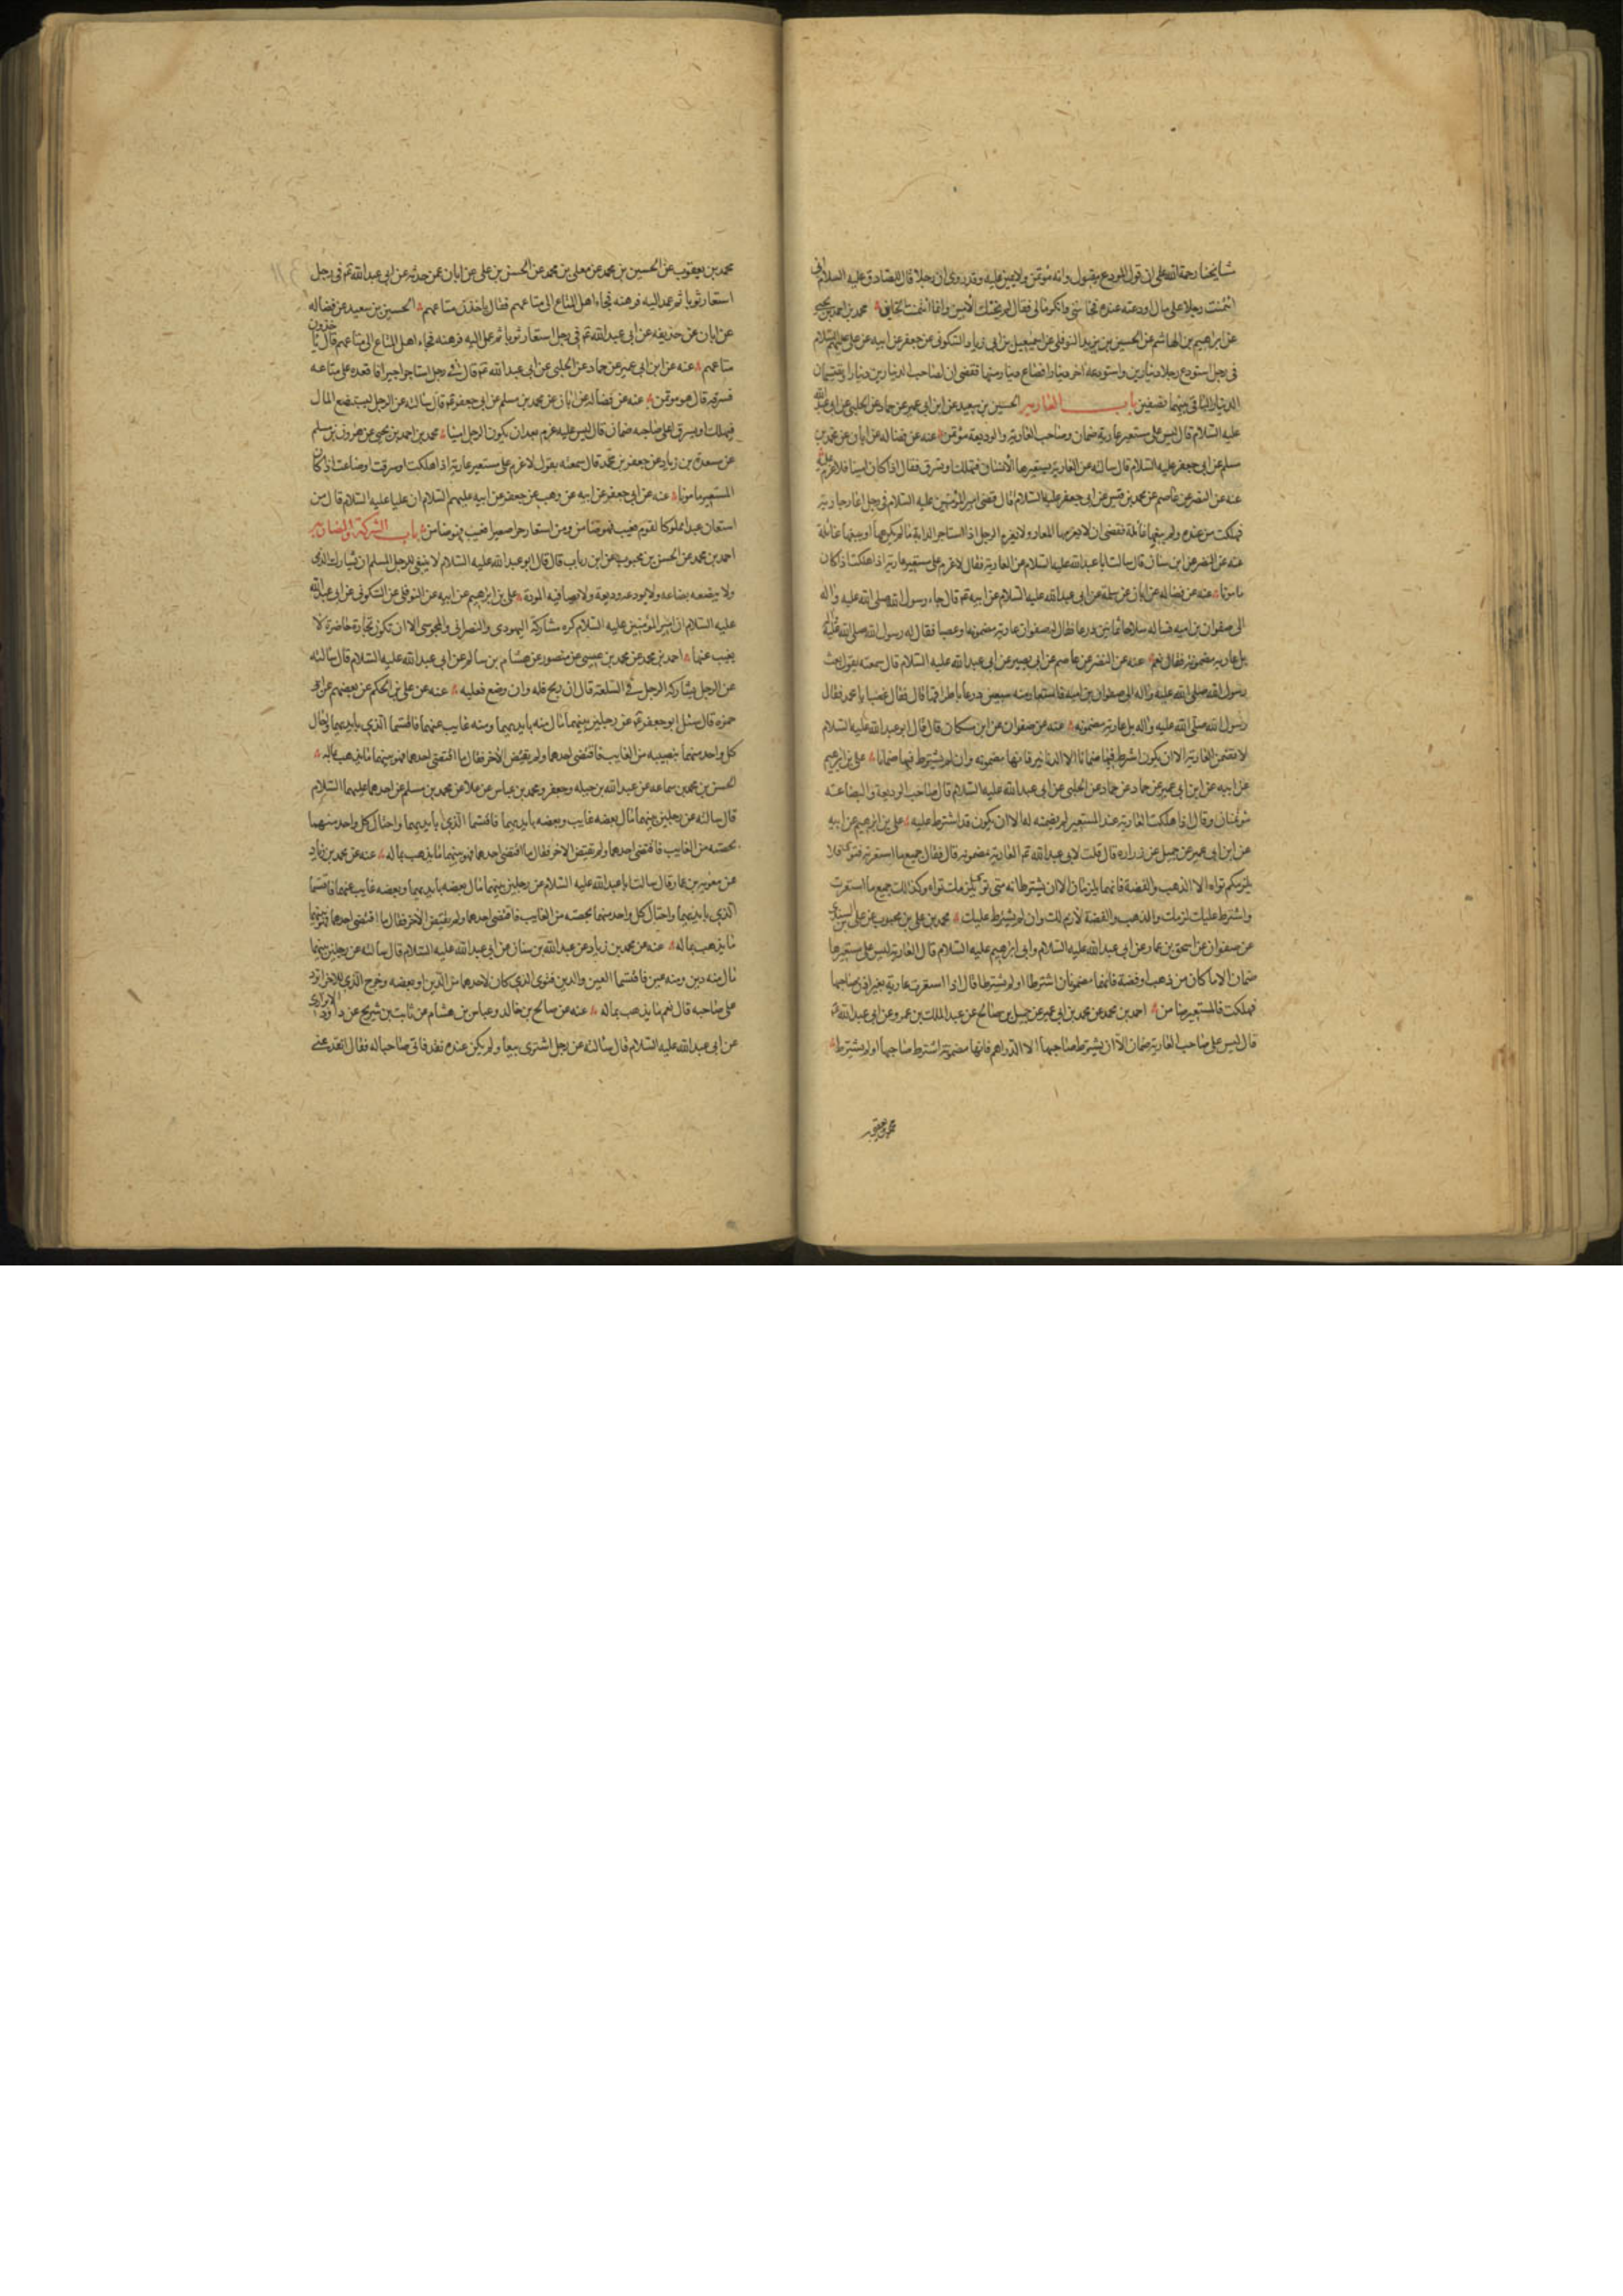 شايخنا رحمة الله على ان قول المودع مقبول وانه مؤتمن ولا يمين عليه وقد روى ان رجلا قال للصادق عليه السلام انى
ائتمنت رجلا على مال اودعته عنده فخاننى وانكر مالى فقال لم يخنك الامين وانما ائتمنت الخاين محمد بن احمد بن يحيى
عن ابرهيم بن الهاشم عن الحسين بن يزيد النوفلى عن اسمعيل بن ابى زياد السكونى عن جعفر عن ابيه عن على عليهم السلام
فى رجل استودع رجلا دينارين واستودعه اخر دينارا فضاع دينار منهما فقضى ان لصاحب الدينارين دينارا ويقتسمان
الدينار الباقى بينهما نصفين باب العارية الحسين بن سعيد عن ابن ابى عمير عن حماد عن الحلبى عن ابى عبد الله
عليه السلام قال ليس على مستعير عارية ضمان وصاحب العارية والوديعة مؤتمن عنه عن فضاله عن ابان عن محمد بن
مسلم عن ابى جعفر عليه السلام قال سالته عن العارية يستعيرها الانسان فتهلك او تسرق فقال اذا كان امينا فلا غرم عليه
عنه عن النضر عن عاصم عن محمد بن قيس عن ابى جعفر عليه السلام قال قضى امير المؤمنين عليه السلام فى رجل اعار جارية
فهلكت من عنده ولم يبغها غائلة فقضى ان لا يغرمها المعار ولا يغرم الرجل اذا استاجر الدابة مالم يكرهها او يبغها غائلة
عنه عن النضر عن ابن سنان قال سالت ابا عبد الله عليه السلام عن العارية فقال لا غرم على مستعير عارية اذا هلكت اذا كان
مامونا عنه عن فضاله عن ابان عن سلمة عن ابى عبد الله عليه السلام عن ابيه ع قال جاء رسول الله صلى الله عليه واله
الى صفوان بن اميه فساله سلاحا ثمانين درعا فقال له صفوان عارية مضمونه او غصبا فقال له رسول الله صلى الله عليه واله
بل عارية مضمونة فقال نعم عنه عن النضر عن عاصم عن ابى بصير عن ابى عبد الله عليه السلام قال سمعته يقول بعث
رسول الله صلى الله عليه واله الى صفوان بن اميه فاستعار منه سبعين درعا باطراقها قال فقال غصبا يا محمد فقال
رسول الله صلى الله عليه واله بل عارية مضمونه عنه عن صفوان عن ابن مسكان قال قال ابو عبد الله عليه السلام
لا تضمن العارية الا ان يكون اشترط فيها ضمانا الا الدنانير فانها مضمونه وان لم يشترط فيها ضمانا على بن ابرهيم
عن ابيه عن ابن ابى عمير عن حماد عن حماد عن الحلبى عن ابى عبد الله عليه السلام قال صاحب الوديعة والبضاعة
مؤتمنان وقال اذا هلكت العارية عند المستعير لم يضمنه لها الا ان يكون قد اشترط عليه على بن ابرهيم عن ابيه
عن ابن ابى عمير عن جميل عن زراره قال قلت لابى عبد الله ع العارية مضمونه قال فقال جميع ما استعرته فتوى فلا
يلزمكم تواه الا الذهب والفضة فانهما يلزمان الا ان يشترط انه متى توى لم يلزمك تواه وكذلك جميع ما استعرت
واشترط عليك لزمك والذهب والفضة لازم لك وان لم يشترط عليك محمد بن على بن محبوب عن على بن السندى
عن صفوان عن اسحق بن عمار عن ابى عبد الله عليه السلام وابى ابرهيم عليه السلام قال العارية ليس على مستعيرها
ضمان الا ما كان من ذهب او فضة فانهما مضمونان اشترطا او لم يشترطا قال اذا استعرت عارية بغير اذن صاحبها
فهلكت فالمستعير ضامن احمد بن محمد عن محمد بن ابى عمير عن جميل بن صالح عن عبد الملك بن عمرو عن ابى عبد الله ع
قال ليس على صاحب العارية ضمان الا ان يشترط صاحبها الا الدراهم فانها مضمونة اشترط صاحبها او لم يشترط
محمد بن يعقوب
محمد بن يعقوب عن الحسين بن محمد عن معلى بن محمد عن الحسن بن على عن ابان عمن حدثه عن ابى عبد الله ع فى رجل
استعار ثوبا ثم عمد اليه فرهنه فجاء اهل المتاع الى متاعهم فقال ياخذون متاعهم الحسين بن سعيد عن فضاله
عن ابان عن حذيفه عن ابى عبد الله ع فى رجل استعار ثوبا ثم عمد اليه فرهنه فجاء اهل المتاع الى متاعهم قال ياخذون
متاعهم عنه عن ابن ابى عمير عن حماد عن الحلبى عن ابى عبد الله ع قال فى رجل استاجر اجيرا فاقعده على متاعه
فسرقه قال هو مؤتمن عنه عن فضاله عن ابان عن محمد بن مسلم عن ابى جعفر ع قال سالته عن الرجل يستبضع المال
فيهلك او يسرق اعلى صاحبه ضمان قال ليس عليه غرم بعد ان يكون الرجل امينا محمد بن احمد بن يحيى عن هرون بن مسلم
عن مسعدة بن زياد عن جعفر بن محمد قال سمعته يقول لا غرم على مستعير عارية اذا هلكت او سرقت او ضاعت اذا كان
المستعير مامونا عنه عن ابى جعفر عن ابيه عن وهب عن جعفر عن ابيه عليهم السلام ان عليا عليه السلام قال من
استعان عبدا مملوكا لقوم فعيب فهو ضامن ومن استعار حرا صغيرا فعيب فهو ضامن باب الشركة والمضاربة
احمد بن محمد عن الحسن بن محبوب عن ابن رياب قال قال ابو عبد الله عليه السلام لا ينبغى للرجل المسلم ان يشارك الذمى
ولا يبضعه بضاعه ولا يودعه وديعة ولا يصافيه المودة على بن ابرهيم عن ابيه عن النوفلى عن السكونى عن ابى عبد الله
عليه السلام ان امير المؤمنين عليه السلام كره مشاركة اليهودى والنصرانى والمجوسى الا ان تكون تجارة حاضرة لا
يغيب عنها احمد بن محمد عن محمد بن عيسى عن منصور عن هشام بن سالم عن ابى عبد الله عليه السلام قال سالته
عن الرجل يشاركه الرجل فى السلعة قال ان ربح فله وان وضع فعليه عنه عن على بن الحكم عن بعضهم عن ابى
حمزه قال سئل ابو جعفر ع عن رجلين بينهما مال منه بايديهما ومنه غايب عنهما فاقتسما الذى بايديهما واحال
كل واحد منهما بنصيبه من الغايب فاقتضى احدهما ولم يقتض الاخر فقال ما اقتضى احدهما فهو بينهما ما يذهب بماله
الحسن بن محمد بن سماعه عن عبد الله بن جبله وجعفر ومحمد بن عباس عن علا عن محمد بن مسلم عن احدهما عليهما السلام
قال سالته عن رجلين بينهما مال بعضه غايب وبعضه بايديهما فاقتسما الذى بايديهما واحتال كل واحد منهما
بحصته من الغايب فاقتضى احدهما ولم يقتض الاخر فقال ما اقتضى احدهما فهو بينهما ما يذهب بماله عنه عن محمد بن زياد
عن معويه بن عمار قال سالت ابا عبد الله عليه السلام عن رجلين بينهما مال بعضه بايديهما وبعضه غايب عنهما فاقتسما
الذى بايديهما واحتال كل واحد منهما بحصته من الغايب فاقتضى احدهما ولم يقتض الاخر فقال ما اقتضى احدهما فهو بينهما
ما يذهب بماله عنه عن محمد بن زياد عن عبد الله بن سنان عن ابى عبد الله عليه السلام قال سالته عن رجلين بينهما
مال منه دين ومنه عين فاقتسما العين والدين فتوى الذى كان لاحدهما من الدين او بعضه وخرج الذى للاخر ايرد
على صاحبه قال نعم ما يذهب بماله عنه عن صالح بن خالد وعباس بن هشام عن ثابت بن شريح عن داود الابزارى
عن ابى عبد الله عليه السلام قال سالته عن رجل اشترى بيعا ولم يكن عنده نقد فاتى صاحبا له فقال انقد عنى